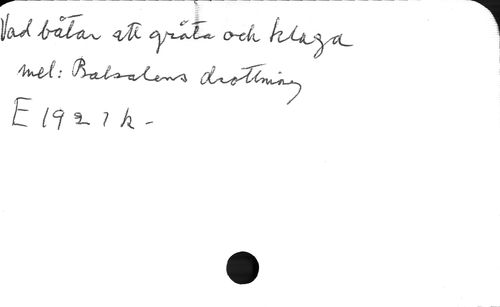 Vad båtar att gråta och klaga
mel: Balsalens drottning
E 1927 k -